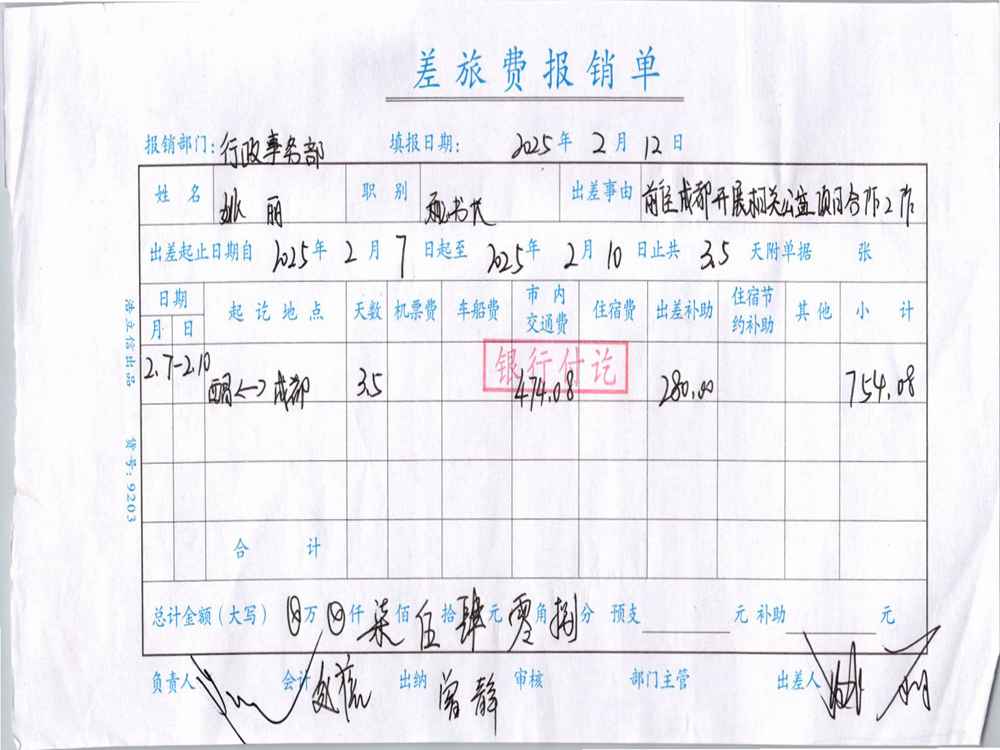 差旅费报销单
报销部门：行政事务部 填报日期： 2025年 2月 12日
姓名 姚丽 职别 秘书长 出差事由 前往成都开展相关公益项目合作工作
出差起止日期自 2025年 2月 7日起至 2025年 2月 10日止共 3.5 天附单据 张
日期 月 日 起讫地点 天数 机票费 车船费 市内交通费 住宿费 出差补助 住宿节约补助 其他 小计
银行付讫
2.7-2.10 <-> 成都 3.5 474.08 280.00 754.08
合计
总计金额（大写） ⊗万 ⊗仟 柒佰 伍拾 肆元 零角 捌分 预支 元 补助 元
负责人 会计 出纳 曾静 审核 部门主管 出差人
货号：9203